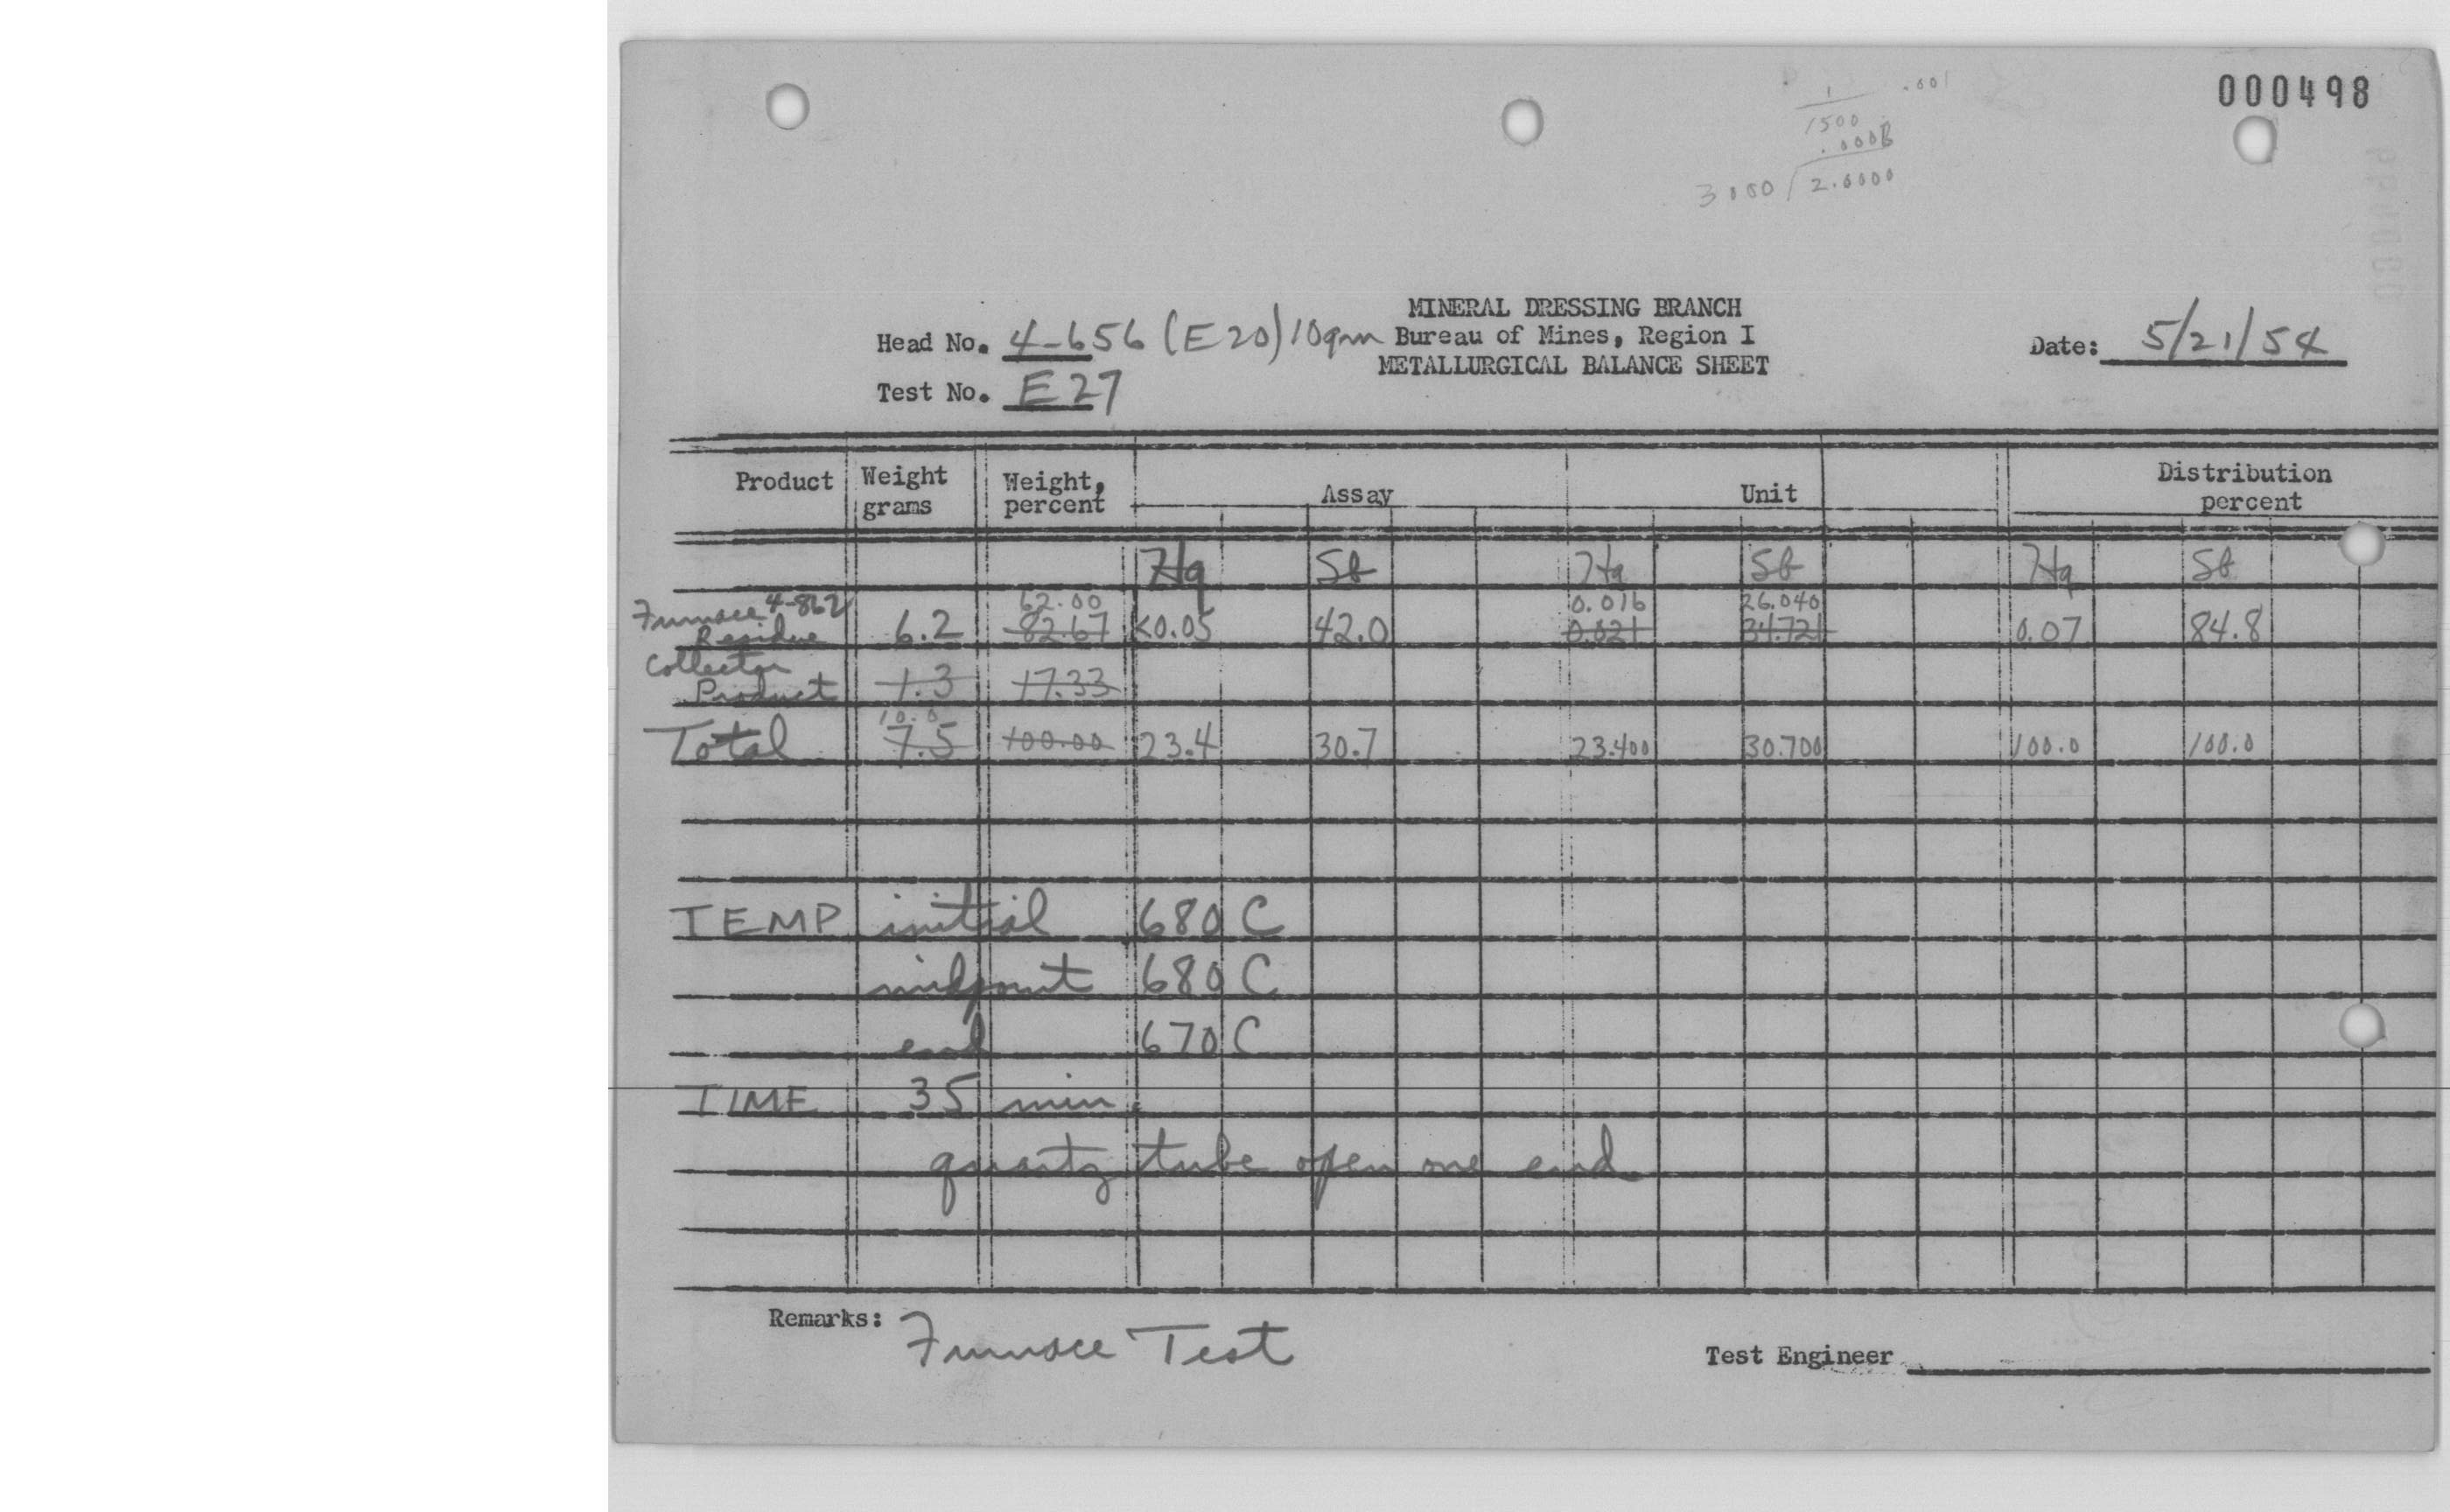 000498
1 .001
1500
.000
3000 2.0000
MINERAL DRESSING BRANCH
Head No. 4-656 (E20) 10gm Bureau of Mines, Region I Date: 5/21/54
METALLURGICAL BALANCE SHEET
Test No. E27
Product Weight grams Weight, percent Assay Unit Distribution percent
Hg Sb Hg Sb Hg Sb
4-862 62.00 0.016 26.040
Furnace Residue 6.2 82.67 <0.05 42.0 0.021 34.721 0.07 84.8
Collector Product 1.3 17.33
10.0
Total 7.5 100.00 23.4 30.7 23.400 30.700 100.0 100.0
TEMP initial 680 C
midpoint 680 C
end 670 C
TIME 35 min.
quartz tube open one end
Remarks: Furnace Test
Test Engineer